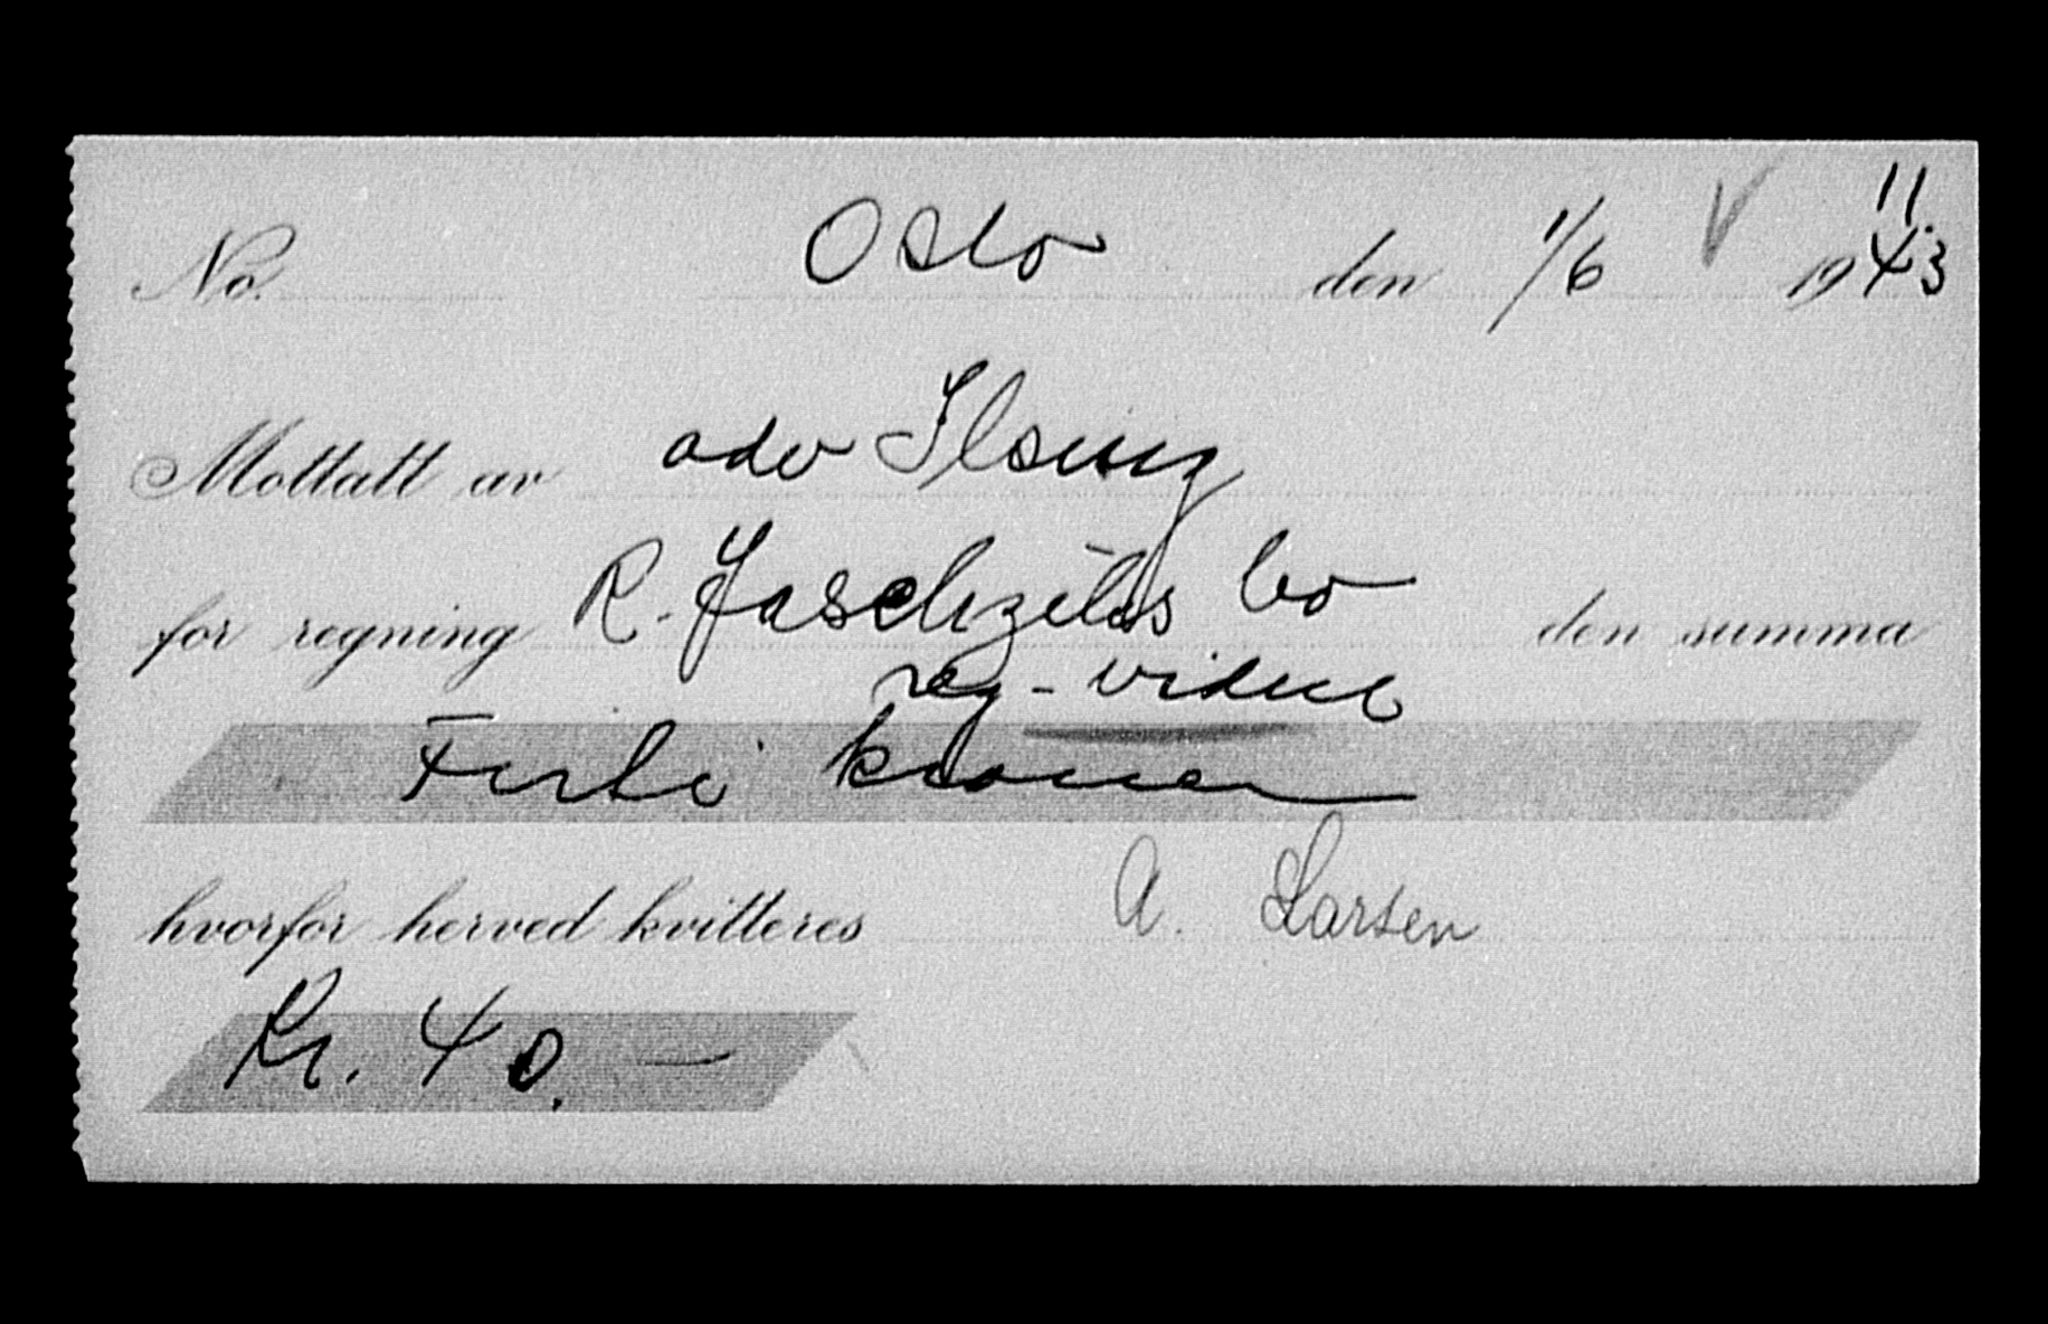 11.
No. Oslo den 1/6 1943
Mottatt av adv Ilsung
for regning R. Jaschzeks bo den summa
reg-
Førti kroner
hvorfor herved kvitteres A. Larsen
Kr. 40.-